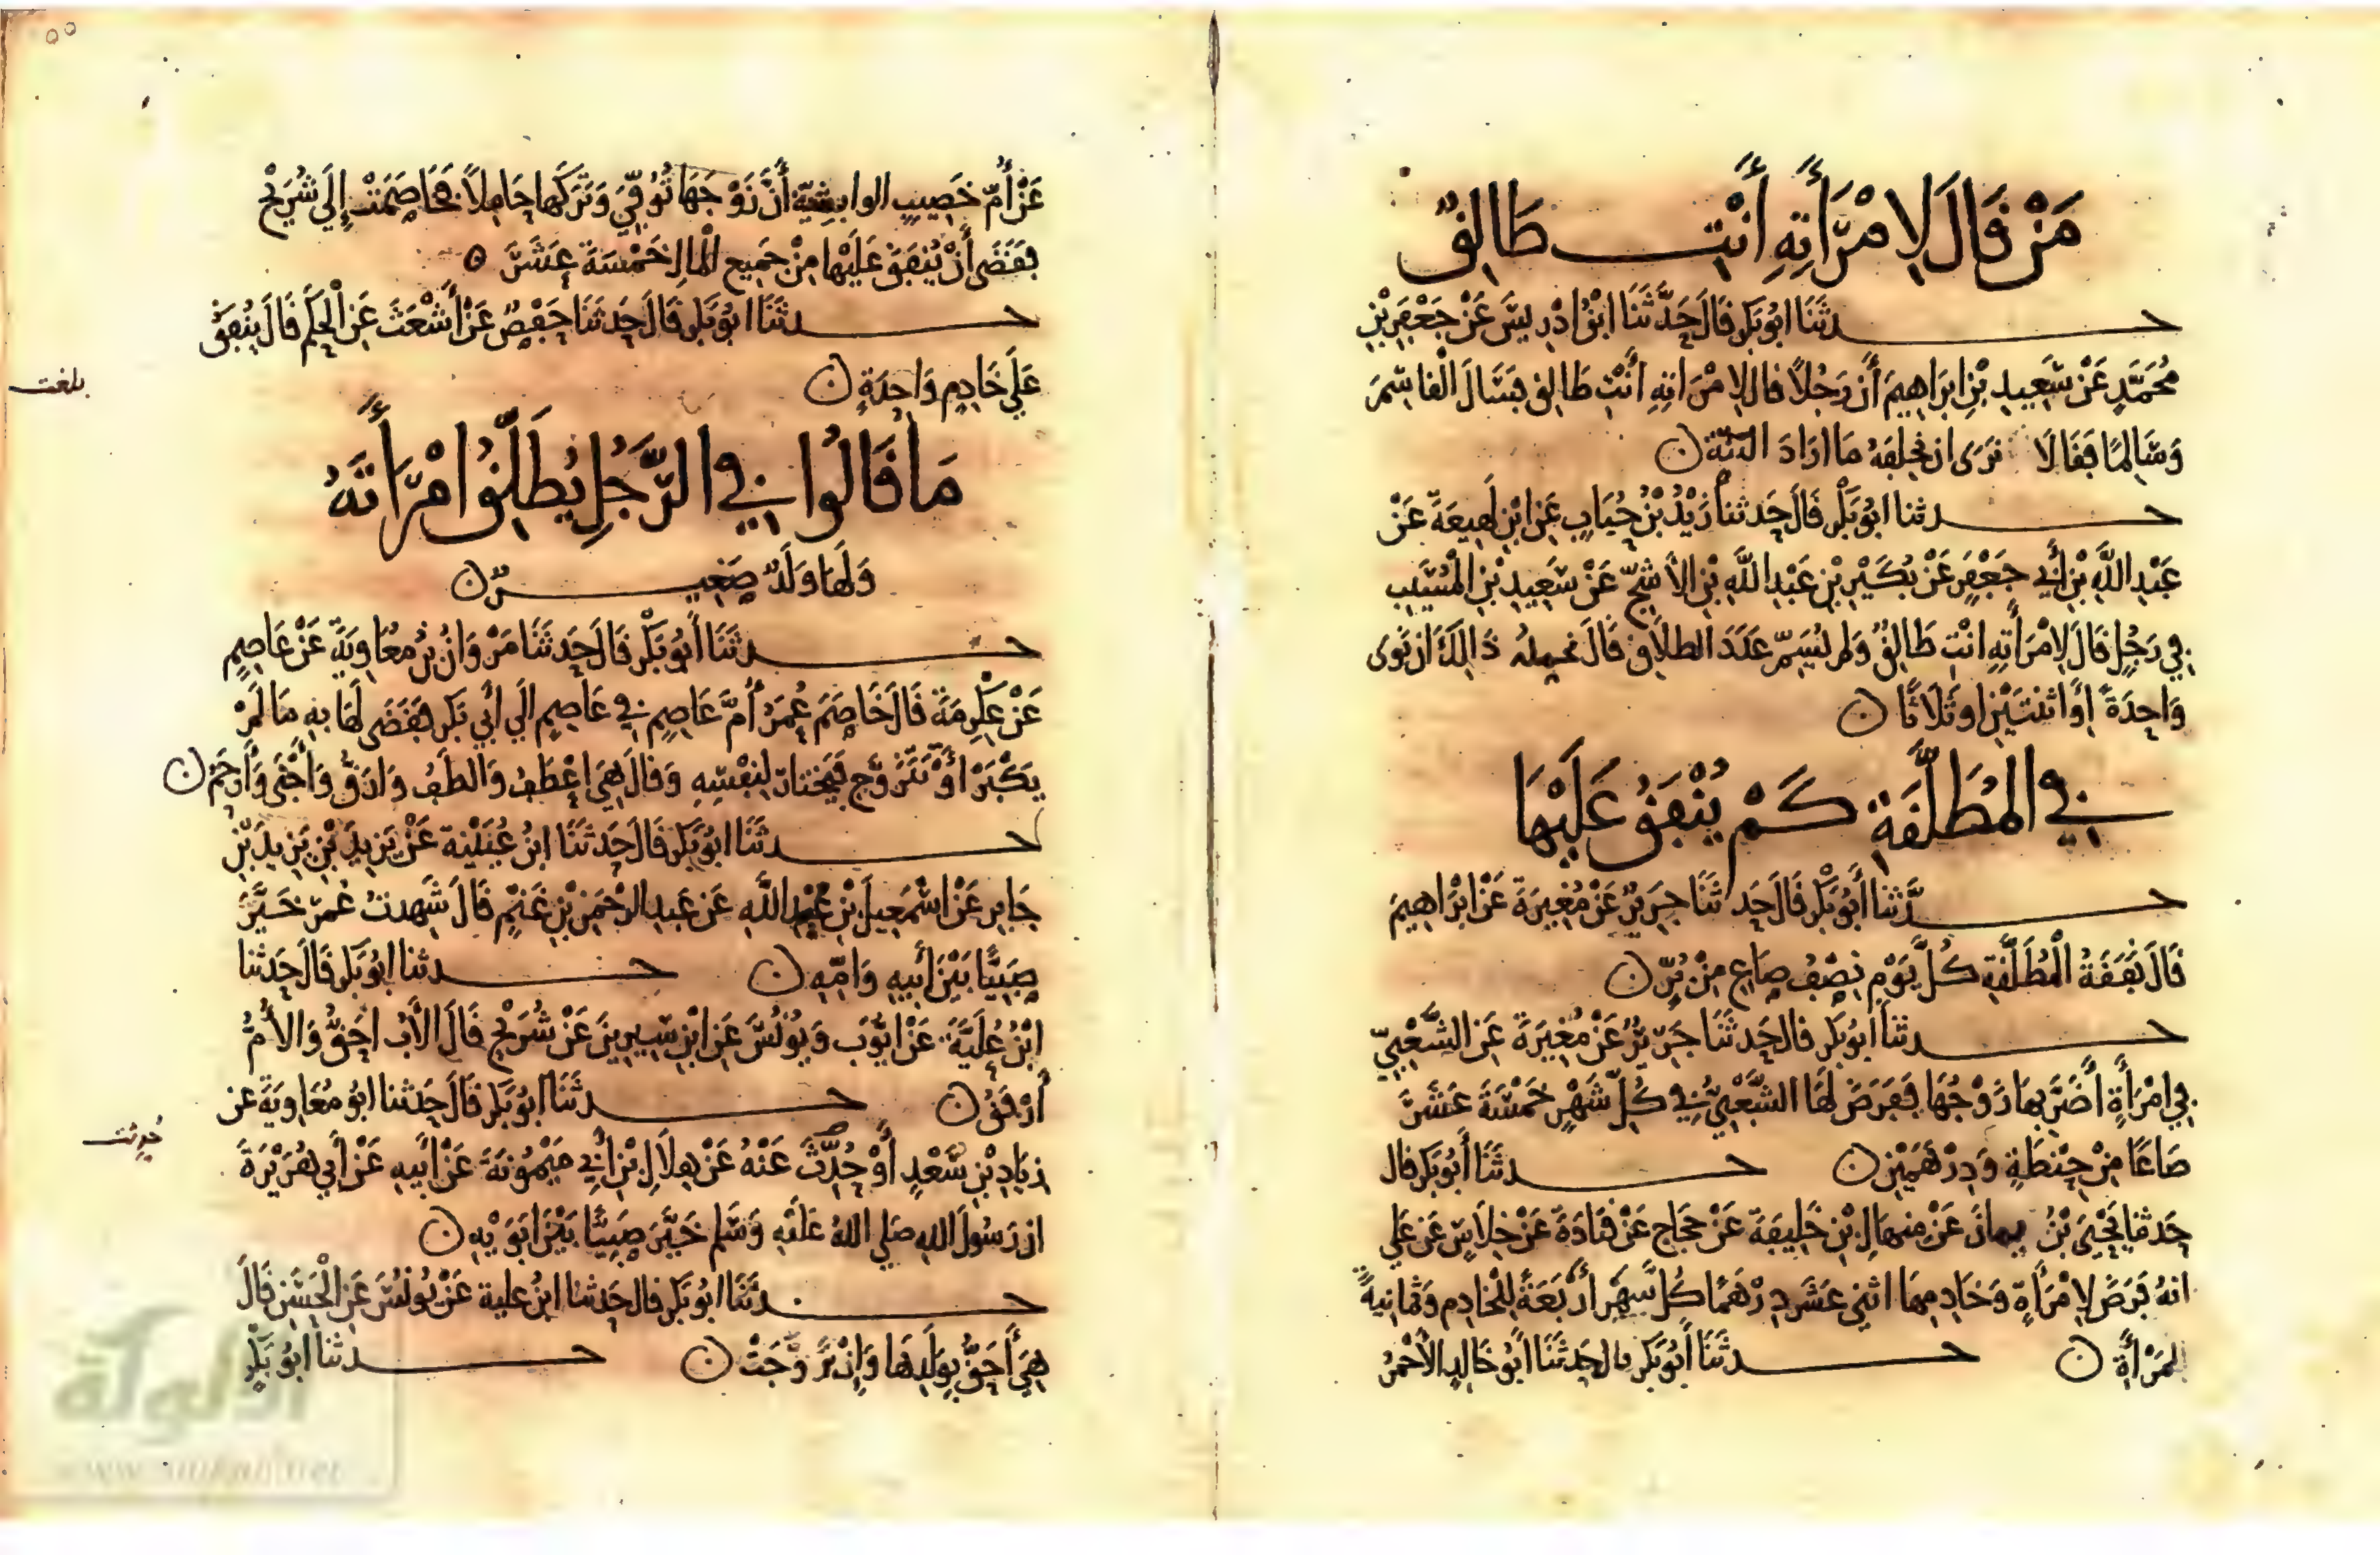 مَنْ قَالَ لِامْرَأَتِهِ أَنْتِ طَالِقٌ
حدثَنَا ابُو بَكْرٍ قَالَ حَدَّثَنَا ابْنُ ادْرِيسَ عَنْ جَعْفَرِ بْنِ
مُحَمَّدٍ عَنْ سَعِيدِ بْنِ ابرَاهِيمَ أَن رَجُلاً قال لِامْرَاتِهِ أَنْتِ طَالِق فَسَالَ الْقاسِمَ
وَسَالِمًا فَقَالَا نرَى ان نُحلِفَهُ مَا ارَادَ البَتَّةَ ن
حدثنا ابُو بَكْرٍ قَالَ حَدثنا زَيْدُ بْنُ حُبَابٍ عَنِ ابْنِ لَهِيعَةَ عَنْ
عَبْدِ اللَّهِ بْنِ أَبِي جَعْفَرٍ عَنْ بُكَيْرِ بْنِ عَبْدِ اللَّهِ بْنِ الأَشَجّ عَنْ سَعِيدِ بْنِ الْمُسَيّبِ
فِي رَجُلٍ قَالَ لِامْرَأَتِهِ انْتِ طَالِقٌ وَلم يُسَمِّ عَدَدَ الطلَاقِ قَالَ ذَالِكَ ان نَوى
وَاحِدَةً أوَ اثنتَيْنِ او ثَلَاثًا ن
فِي الْمُطَلَّقَةِ كَمْ يُنْفَقُ عَلَيْهَا
حدَّثنا أَبُو بَكْرٍ قَالَ حَدثَنَا جَرِيرٌ عَنْ مُغِيرَةَ عَنْ ابْرَاهِيمَ
قَالَ نَفَقَةُ الْمُطَلَّقَةِ كُلَّ يَوْمٍ نِصْفُ صَاعٍ مِنْ بُرٍّ ن
حدثنا أَبُو بَكْرٍ قال حَدثَنَا جَرِيرٌ عَنْ مُغِيرَةَ عَنِ الشَّعْبِيِّ
فِي امْرَأَةٍ أَضَرَّ بِهَا زَوْجُهَا فَفَرَضَ لَهَا الشَّعْبِيُّ فِي كُلِّ شَهْرٍ خَمْسَةَ عَشَرَ
صَاعًا مِنْ حِنْطَةٍ وَدِرْهَمَيْنِ ن حدثَنَا أَبُو بَكْرٍ قال
حَدثنا يَحْيَى بْنُ يمانٍ عَنْ مِنهَالِ بْنِ خَلِيفَةَ عَنْ حَجَّاجٍ عَنْ قتَادَةَ عَنْ خِلَاسٍ عَن عَلي
انهُ فَرَضَ لِامْرَأَةٍ وَخَادِمِهَا اثنَي عَشَرَ دِرْهَمًا كُلَّ شَهْرٍ أَرْبَعَةً لِلْخَادِمِ وَثَمَانِيَةً
لِلمَرْأَةِ ن حدثَنَا أَبُو بَكْرٍ قال حَدثَنَا أَبُو خَالِدٍ الأَحْمَرُ
عَنْ أُمِّ خَصِيبٍ الوابشيَّة أَنَّ زَوْجَهَا تُوُفِّيَ وَتَرَكَهَا حَامِلًا فَخَاصَمَتْ إِلَى شُرَيْحٍ
فَقَضَى أَنْ يُنْفَقَ عَلَيْهَا مِنْ جَمِيعِ الْمَالِ خَمْسَةَ عَشَرَ ه
حدثَنَا ابُو بَكْرٍ قَالَ حَدثَنَا حَفْصٌ عَنْ أَشْعَثَ عَنِ الْحَكَمِ قَالَ يُنْفَقُ
عَلَى خَادِمٍ وَاحِدَةٍ ن
بلغت
مَا قَالُوا فِي الرَّجُلِ يُطَلِّقُ امْرَأَتَهُ
وَلَهَا وَلَدٌ صَغِيرٌ ن
حدثَنَا أَبُو بَكْرٍ قَالَ حَدثَنَا مَرْوَانُ بْنُ مُعَاوِيَةَ عَنْ عَاصِمٍ
عَنْ عِكْرِمَةَ قَالَ خَاصَمَ عُمَرُ أُمَّ عَاصِمٍ فِي عَاصِمٍ الَي أَبي بَكْرٍ فَقَضَى لَهَا بِهِ مَا لَمْ
يَكْبَرْ أَوْ تَتَزَوَّج فيَختار لِنَفْسِهِ وَقَالَ هِيَ أَعْطَفُ وَالطَفُ وَارَقُّ وَأَحْنَى وَأَرْحَمُ ن
حدثَنَا ابُو بَكْرٍ قَالَ حَدثَنَا ابنُ عُيَيْنَةَ عَنْ يَزِيدَ بْنِ يَزِيدَ بْنِ
جَابِرٍ عَنْ اسْمَعِيلَ بْنِ عُبَيْدِ اللَّهِ عَن عَبدِ الرَّحْمَنِ بْنِ غَنْمٍ قَالَ شَهِدتُ عُمَرَ خَيَّرَ
صَبِيًّا بَيْنَ أَبِيهِ وَامِّهِ ن حدثنا ابُو بَكْرٍ قَالَ حَدثنا
ابْنُ عُلَيَّةَ عَنْ ايُّوبَ وَيُونُسَ عَنِ ابْنِ سِيرِينَ عَنْ شُرَيْحٍ قَالَ الْأَبُ احَقُّ وَالأُمُّ
أَرْفَقُ ن حدثَنَا ابُو بَكْرٍ قَالَ حَدثنا ابُو مُعَاوِيَةَ عَن
زِيَادِ بْنِ سَعْدٍ أَوْ حُدِّثَ عَنْهُ عَنْ هِلَالِ بْنِ أَبِي مَيْمُونَةَ عَنْ ابِيهِ عَنْ أَبِي هُرَيْرَةَ
ان رَسُولَ اللهِ صَلي اللهُ عَليْهِ وَسَلم خَيَّرَ صَبِيًّا بَيْنَ ابَوَيْهِ ن
حدثَنَا ابُو بَكْرٍ قال حَدثنا ابنُ علية عَنْ يُونُسَ عَنِ الْحَسَنِ قَالَ
هِيَ أَحَقُّ بِوَلَدِهَا وَإِنْ تَزَوَّجَتْ ن حدثنا ابُو بَكْرٍ
الألوكة